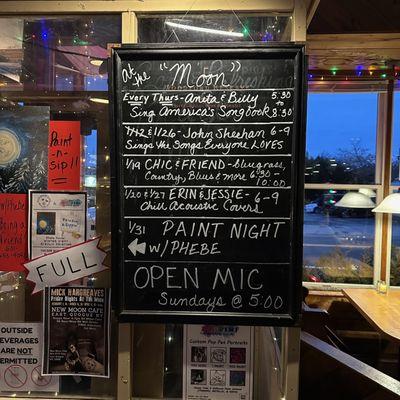 At the "Moon"
Every Thurs - Anita & Billy 5:30
Sing America's Songbook to 8:30
1/12 & 1/26 - John Sheehan 6-9
Sings the Songs Everyone LOVES
1/19 CHIC & FRIEND - bluegrass,
Country, Blues & more 6:30
10:00
1/20 & 1/27 ERIN & JESSIE - 6-9
Chill Acoustic Covers
1/31 PAINT NIGHT
W/PHEBE
OPEN MIC
Sundays @ 5:00
Paint
-n-
sip!!
FULL
MICK HARGREAVES
Friday Nights at the
NEW MOON CAFE
OUTSIDE
BEVERAGES
ARE NOT
PERMITTED
Custom Pop Pen Portraits